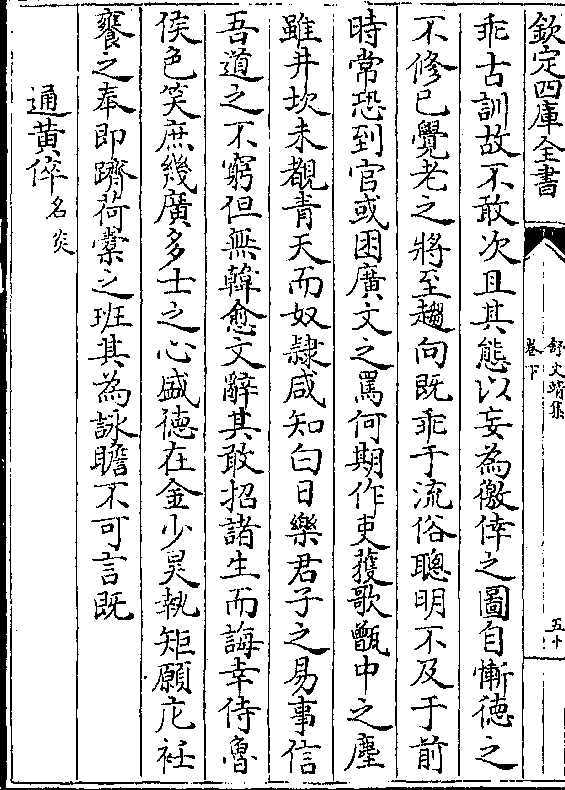 欽定四庫全書
舒文靖集
卷下
五十
乖古訓故不敢次且其態以妄為僥倖之圖自慚德之
不修已覺老之將至趨向既乖于流俗聰明不及于前
時常恐到官或困廣文之罵何期作吏獲歌甑中之塵
雖井坎未覩青天而奴隸咸知白日樂君子之易事信
吾道之不窮但無韓愈文辭其敢招諸生而誨幸侍魯
侯色笑庶幾廣多士之心盛德在金少昊執矩願庀衽
饔之奉即躋荷橐之班其為詠瞻不可言既
通黄倅名炎